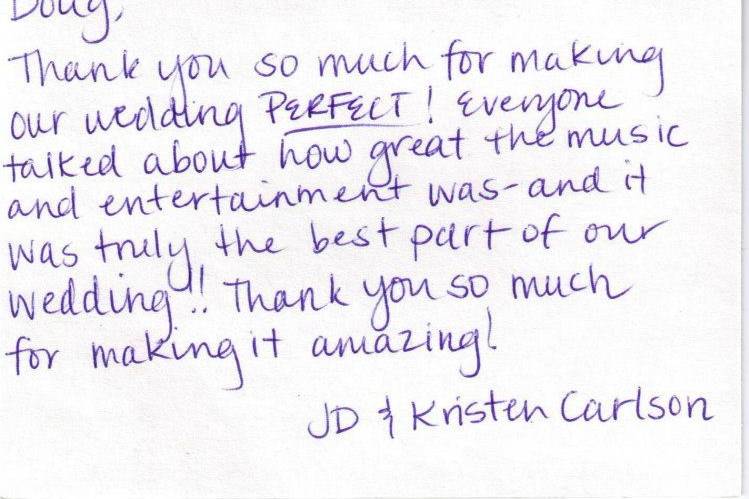 Doug,
Thank you so much for making
our wedding PERFECT! Everyone
talked about how great the music
and entertainment was-and it
was truly the best part of our
wedding!! Thank you so much
for making it amazing!
JD & Kristen Carlson